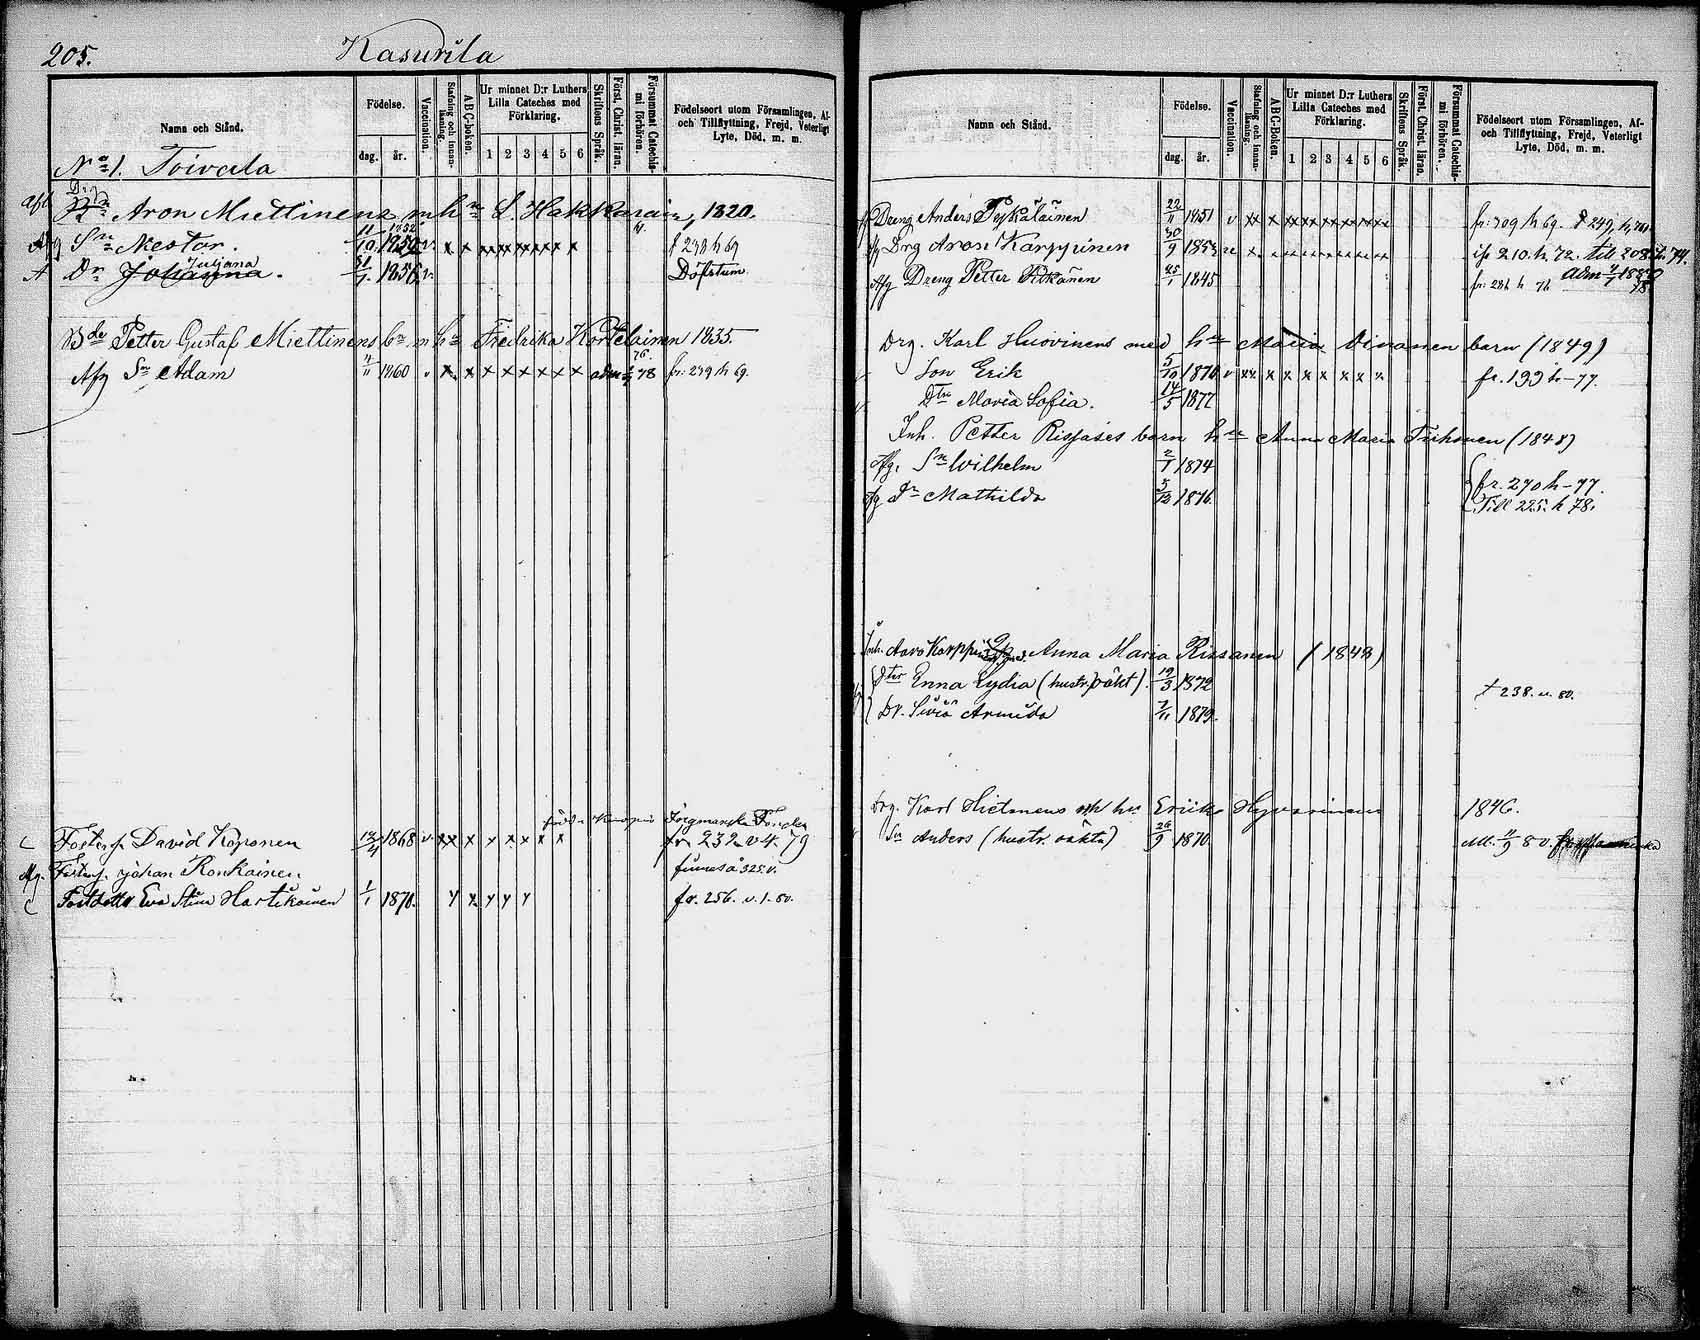 205.
Kasurila
Namn och Stånd.
Födelse.
dag.
år.
Vaccination.
Stafning och innanläsning.
ABC-boken.
Ur minnet D:r Luthers Lilla Cateches med Förklaring.
1 2 3 4 5 6
Skriftens Språk.
Först. Christ. läran.
Försummat Catechismi förhören.
Födelseort utom Församlingen, Af- och Tillflyttning, Frejd, Veterligt Lyte, Död, m. m.
No 1. Toivala
Aron Miettinens m hu L. Hakkarain, 1820.
Afg Sn Nestor. 11/10 1852 1850 v. x x xxxxxxx x f 239 h 69
A Dr Juliana Johanna. 31/7 1856 v. Döfstum
Bde Petter Gustaf Miettinens bn m hu Fredrika Kortelainen 1835.
Afg Sn Adam 4/11 1860 v x x x x x x x x adm 78 fr. 239 h 69.
Jorgmanska Fonden
C Fosters. David Koponen 12/4 1868 v xx x x x x x x fr 232 v 4. 79
Afg. Fosters. Johan Ronkainen finnes å 325. v.
C Fostdottr Eva Stina Hartikainen 1/1 1870. x x x x x fr. 256. v. 1. 80.
Namn och Stånd.
Födelse.
dag.
år.
Vaccination.
Stafning och innanläsning.
ABC-Boken.
Ur minnet D:r Luthers Lilla Cateches med Förklaring.
1 2 3 4 5 6
Skriftens Språk.
Först. Christ. läran.
Försummat Catechismi förhören.
Födelseort utom Församlingen, Af- och Tillflyttning, Frejd, Veterligt Lyte, Död, m. m.
Dreng Anders Pyykäläinen 22/11 1851 v xx x xxxxxxxxxx fr. 309 h 69. 249, h,
Drg Aron Karppinen 30/9 185 x x xxxxxxxx 210. h. 72. till 208. 74.
Afg Dreng Petter Pitkänen 25/1 1845 fr. 286 h 76 adm 1880
Drg. Karl Huovinens med hu Maria Vinonen barn (1849)
Son Erik 5/10 1870 v xx x x x x x x x fr. 199 h-77.
Dtr Maria Sofia. 14/5 1877
Inh. Petter Rissases barn hu Anna Maria Tiihonen (1848)
Afg. Sn Wilhelm 2/1 1874
Afg Dr Mathilda 5/12 1876. fr. 270 h-77.
Till 225. h 78.
Inh. Aaro Karppinen Anna Maria Rissanen (1848)
Dter Enna Lydia (hustr. oäkt). 19/3 1872 238. v. 80.
Dr. Siviä Armida 7/11 1879.
Drg. Karl Hietinens hu Erika Hyvärinen 1846.
Sn Anders (hustr. oäkta) 26/9 1870. Att. 11/9 80.